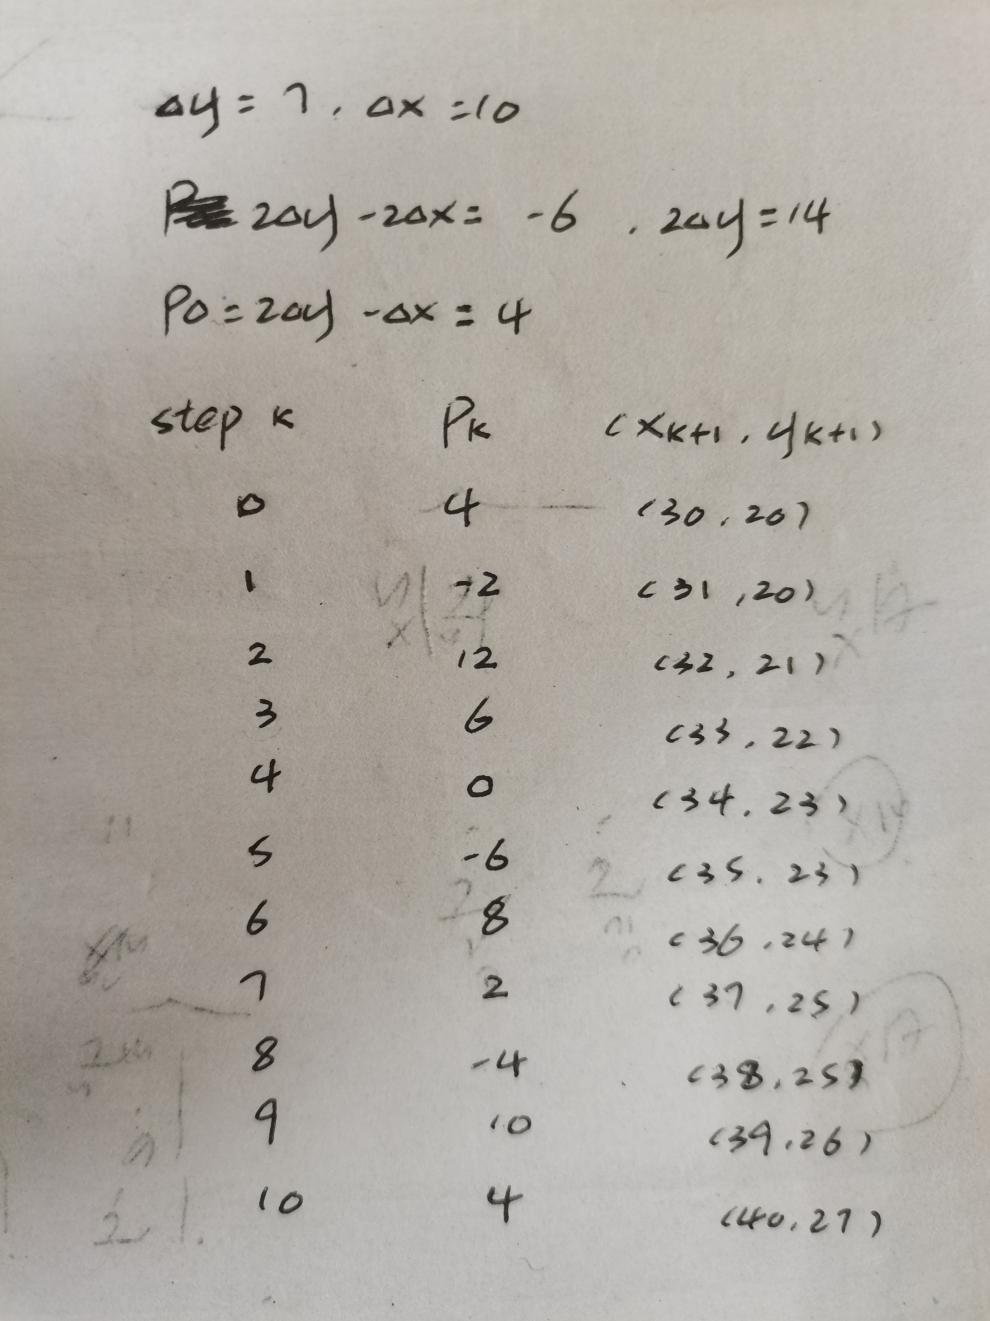 Δy = 7 . Δx = 10
2Δy - 2Δx = -6 . 2Δy = 14
P0 = 2Δy - Δx = 4
step k Pk (xk+1 , yk+1)
0 4 (30 . 20)
1 -2 (31 , 20)
2 12 (32 , 21)
3 6 (33 . 22)
4 0 (34 . 23)
5 -6 (35 . 23)
6 8 (36 . 24)
7 2 (37 . 25)
8 -4 (38 , 25)
9 10 (39 . 26)
10 4 (40 . 27)